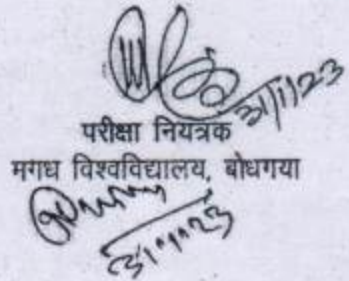 31/1/23
परीक्षा नियंत्रक
मगध विश्वविद्यालय, बोधगया
31.1.23